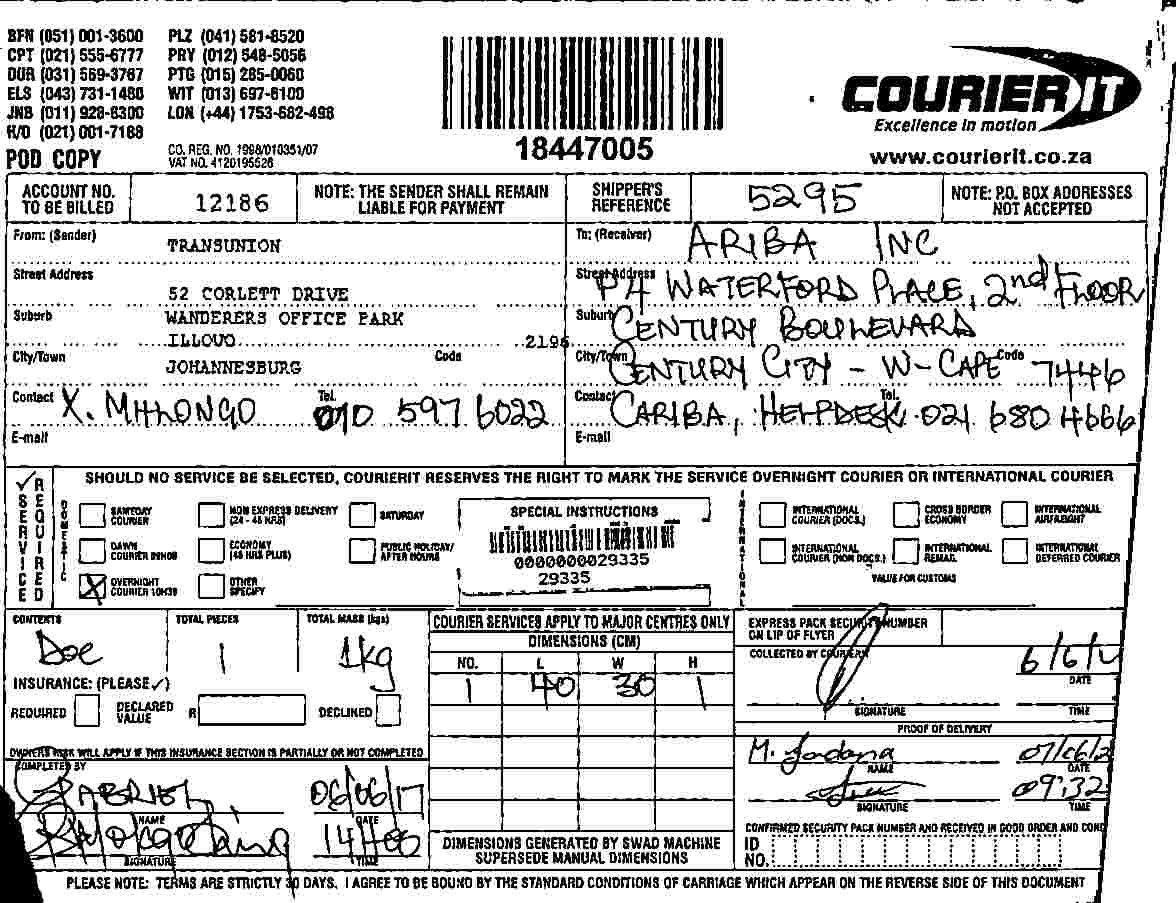 BFN (051) 001-3600 PLZ (041) 581-8520
CPT (021) 555-6777 PRY (012) 548-5056
DUR (031) 569-3767 PTG (015) 285-0060
ELS (043) 731-1480 WIT (013) 697-6100
JNB (011) 928-8300 LON (+44) 1753-682-498
H/O (021) 001-7188
POD COPY
CO. REG. NO. 1998/010351/07
VAT NO. 4120195526
18447005
COURIER IT
Excellence in motion
www.courierit.co.za
ACCOUNT NO. TO BE BILLED
12186
NOTE: THE SENDER SHALL REMAIN LIABLE FOR PAYMENT
SHIPPER'S REFERENCE
5295
NOTE: P.O. BOX ADDRESSES NOT ACCEPTED
From: (Sender)
TRANSUNION
Street Address
52 CORLETT DRIVE
Suburb
WANDERERS OFFICE PARK
ILLOVO 2196
City/Town Code
JOHANNESBURG
Contact X. MHLONGO Tel. 010 597 6022
E-mail
To: (Receiver) ARIBA INC
Street Address P4 WATERFORD PLACE, 2nd FLOOR
Suburb CENTURY BOULEVARD
City/Town CENTURY CITY - W-CAPE Code 7446
Contact CARIBA, HELPDESK Tel. 021 680 4666
E-mail
SERVICE REQUIRED
SHOULD NO SERVICE BE SELECTED, COURIERIT RESERVES THE RIGHT TO MARK THE SERVICE OVERNIGHT COURIER OR INTERNATIONAL COURIER
DOMESTIC
SAMEDAY COURIER
NON EXPRESS DELIVERY (24 - 48 HRS)
SATURDAY
DAWN COURIER
ECONOMY (48 HRS PLUS)
PUBLIC HOLIDAY/ AFTER HOURS
OVERNIGHT COURIER 10H30
OTHER SPECIFY
SPECIAL INSTRUCTIONS
0000000029335
29335
INTERNATIONAL
INTERNATIONAL COURIER (DOCS.)
CROSS BORDER ECONOMY
INTERNATIONAL AIRFREIGHT
INTERNATIONAL COURIER (NON DOCS.)
INTERNATIONAL REMAIL
INTERNATIONAL DEFERRED COURIER
VALUE FOR CUSTOMS
CONTENTS
Doc
TOTAL PIECES
1
TOTAL MASS (kgs)
1kg
INSURANCE: (PLEASE ✓)
REQUIRED
DECLARED VALUE R
DECLINED
OWNERS RISK WILL APPLY IF THIS INSURANCE SECTION IS PARTIALLY OR NOT COMPLETED
COMPLETED BY
GABRIEL 06/06/17
NAME DATE
SIGNATURE TIME
COURIER SERVICES APPLY TO MAJOR CENTRES ONLY
DIMENSIONS (CM)
NO. L W H
1 40 30 1
DIMENSIONS GENERATED BY SWAD MACHINE SUPERSEDE MANUAL DIMENSIONS
EXPRESS PACK SECURITY NUMBER ON LIP OF FLYER
COLLECTED BY COURIERIT
6/6/
DATE
SIGNATURE TIME
PROOF OF DELIVERY
M. 07/06/2
NAME DATE
09:32
SIGNATURE TIME
CONFIRMED SECURITY PACK NUMBER AND RECEIVED IN GOOD ORDER AND COND
ID NO.
PLEASE NOTE: TERMS ARE STRICTLY 30 DAYS. I AGREE TO BE BOUND BY THE STANDARD CONDITIONS OF CARRIAGE WHICH APPEAR ON THE REVERSE SIDE OF THIS DOCUMENT